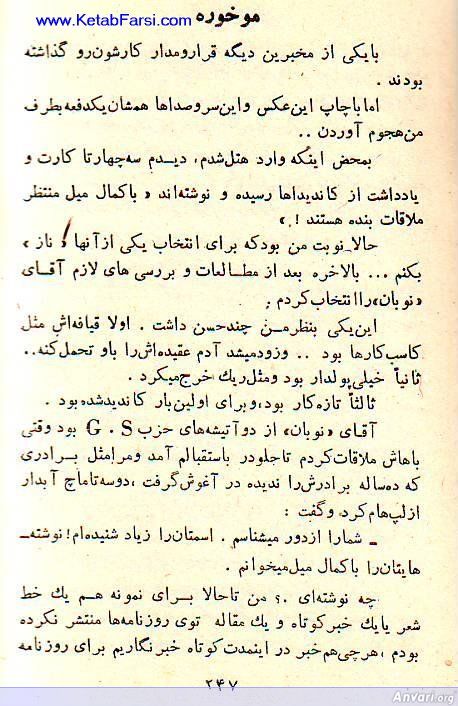 www.KetabFarsi.com
موخوره
بایکی از مخبرین دیگه قرارومدار کارشون‌رو گذاشته
بودند .
اما باچاپ این‌عکس و این‌سروصداها همشان یکدفعه بطرف
من‌هجوم آوردن ..
بمحض اینکه وارد هتل‌شدم، دیدم سه‌چهارتا کارت و
یادداشت از کاندیداها رسیده و نوشته‌اند « باکمال میل منتظر
ملاقات بنده هستند ! »
حالا نوبت من بودکه برای انتخاب یکی از آنها « ناز »
بکنم ... بالاخره بعد از مطالعات و بررسی های لازم آقای
«نوبان» را انتخاب کردم .
این‌یکی بنظر من چندحسن داشت . اولا قیافه‌اش مثل
کاسب‌کارها بود .. وزودمیشد آدم عقیده‌اش‌را باو تحمل‌کنه..
ثانیاً خیلی‌پولدار بود ومثل‌ریك خرج‌میکرد .
ثالثاً تازه‌کار بود،وبرای اولین‌بار کاندیدشده‌بود .
آقای «نوبان» از دوآتیشه‌های حزب G . S بود وقتی
باهاش ملاقات‌کردم تاجلودر باستقبالم آمد ومرامثل برادری
که ده‌ساله برادرش‌را ندیده در آغوش‌گرفت ،دوسه‌تاماچ آبدار
ازلپ‌هام‌کرد وگفت :
ـ شمارا ازدور میشناسم . اسمتان‌را زیاد شنیده‌ام! نوشته‌ـ
هایتان‌را باکمال میل‌میخوانم .
چه نوشته‌ای .؟ من تاحالا برای نمونه هم یك خط
شعر یایك خبرکوتاه و یك مقاله توی روزنامه‌ها منتشر نکرده
بودم ،هرچی‌هم‌خبر در اینمدت‌کوتاه خبرنگاریم برای روزنامه
۲۴۷
Anvari.org